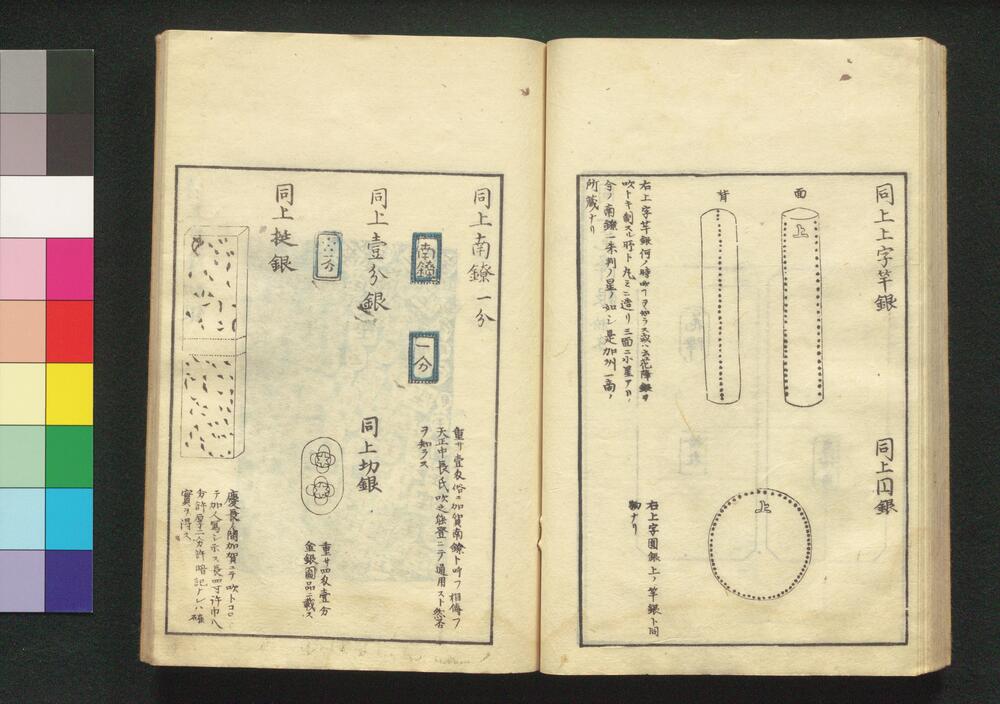 同上上字竿銀
面
上
背
右上字竿銀何ノ時
吹トキ割スル所ト丸ミニ造リ三面ニ小星アリ
今ノ南鐐一朱判ノ星ノ如シ是加州一商ノ
所藏ナリ
同上円銀
上
右上字圓銀上ノ竿銀ト同
物ナリ
同上南鐐一分
南鐐
一分
重サ壹匁俗ニ加賀南鐐ト呼フ相傳フ
天正中長氏吹之能登ニテ通用スト然否
ヲ知ラス
同上壹分銀
一分
同上切銀
重サ四匁壹分
金銀圖品ニ載ス
同上挺銀
慶長ノ間加賀ニテ吹トコロ
テ加人寫シ示ス長四寸許巾八
分許厚二分許暗記ナレハ確
實ヲ得ス